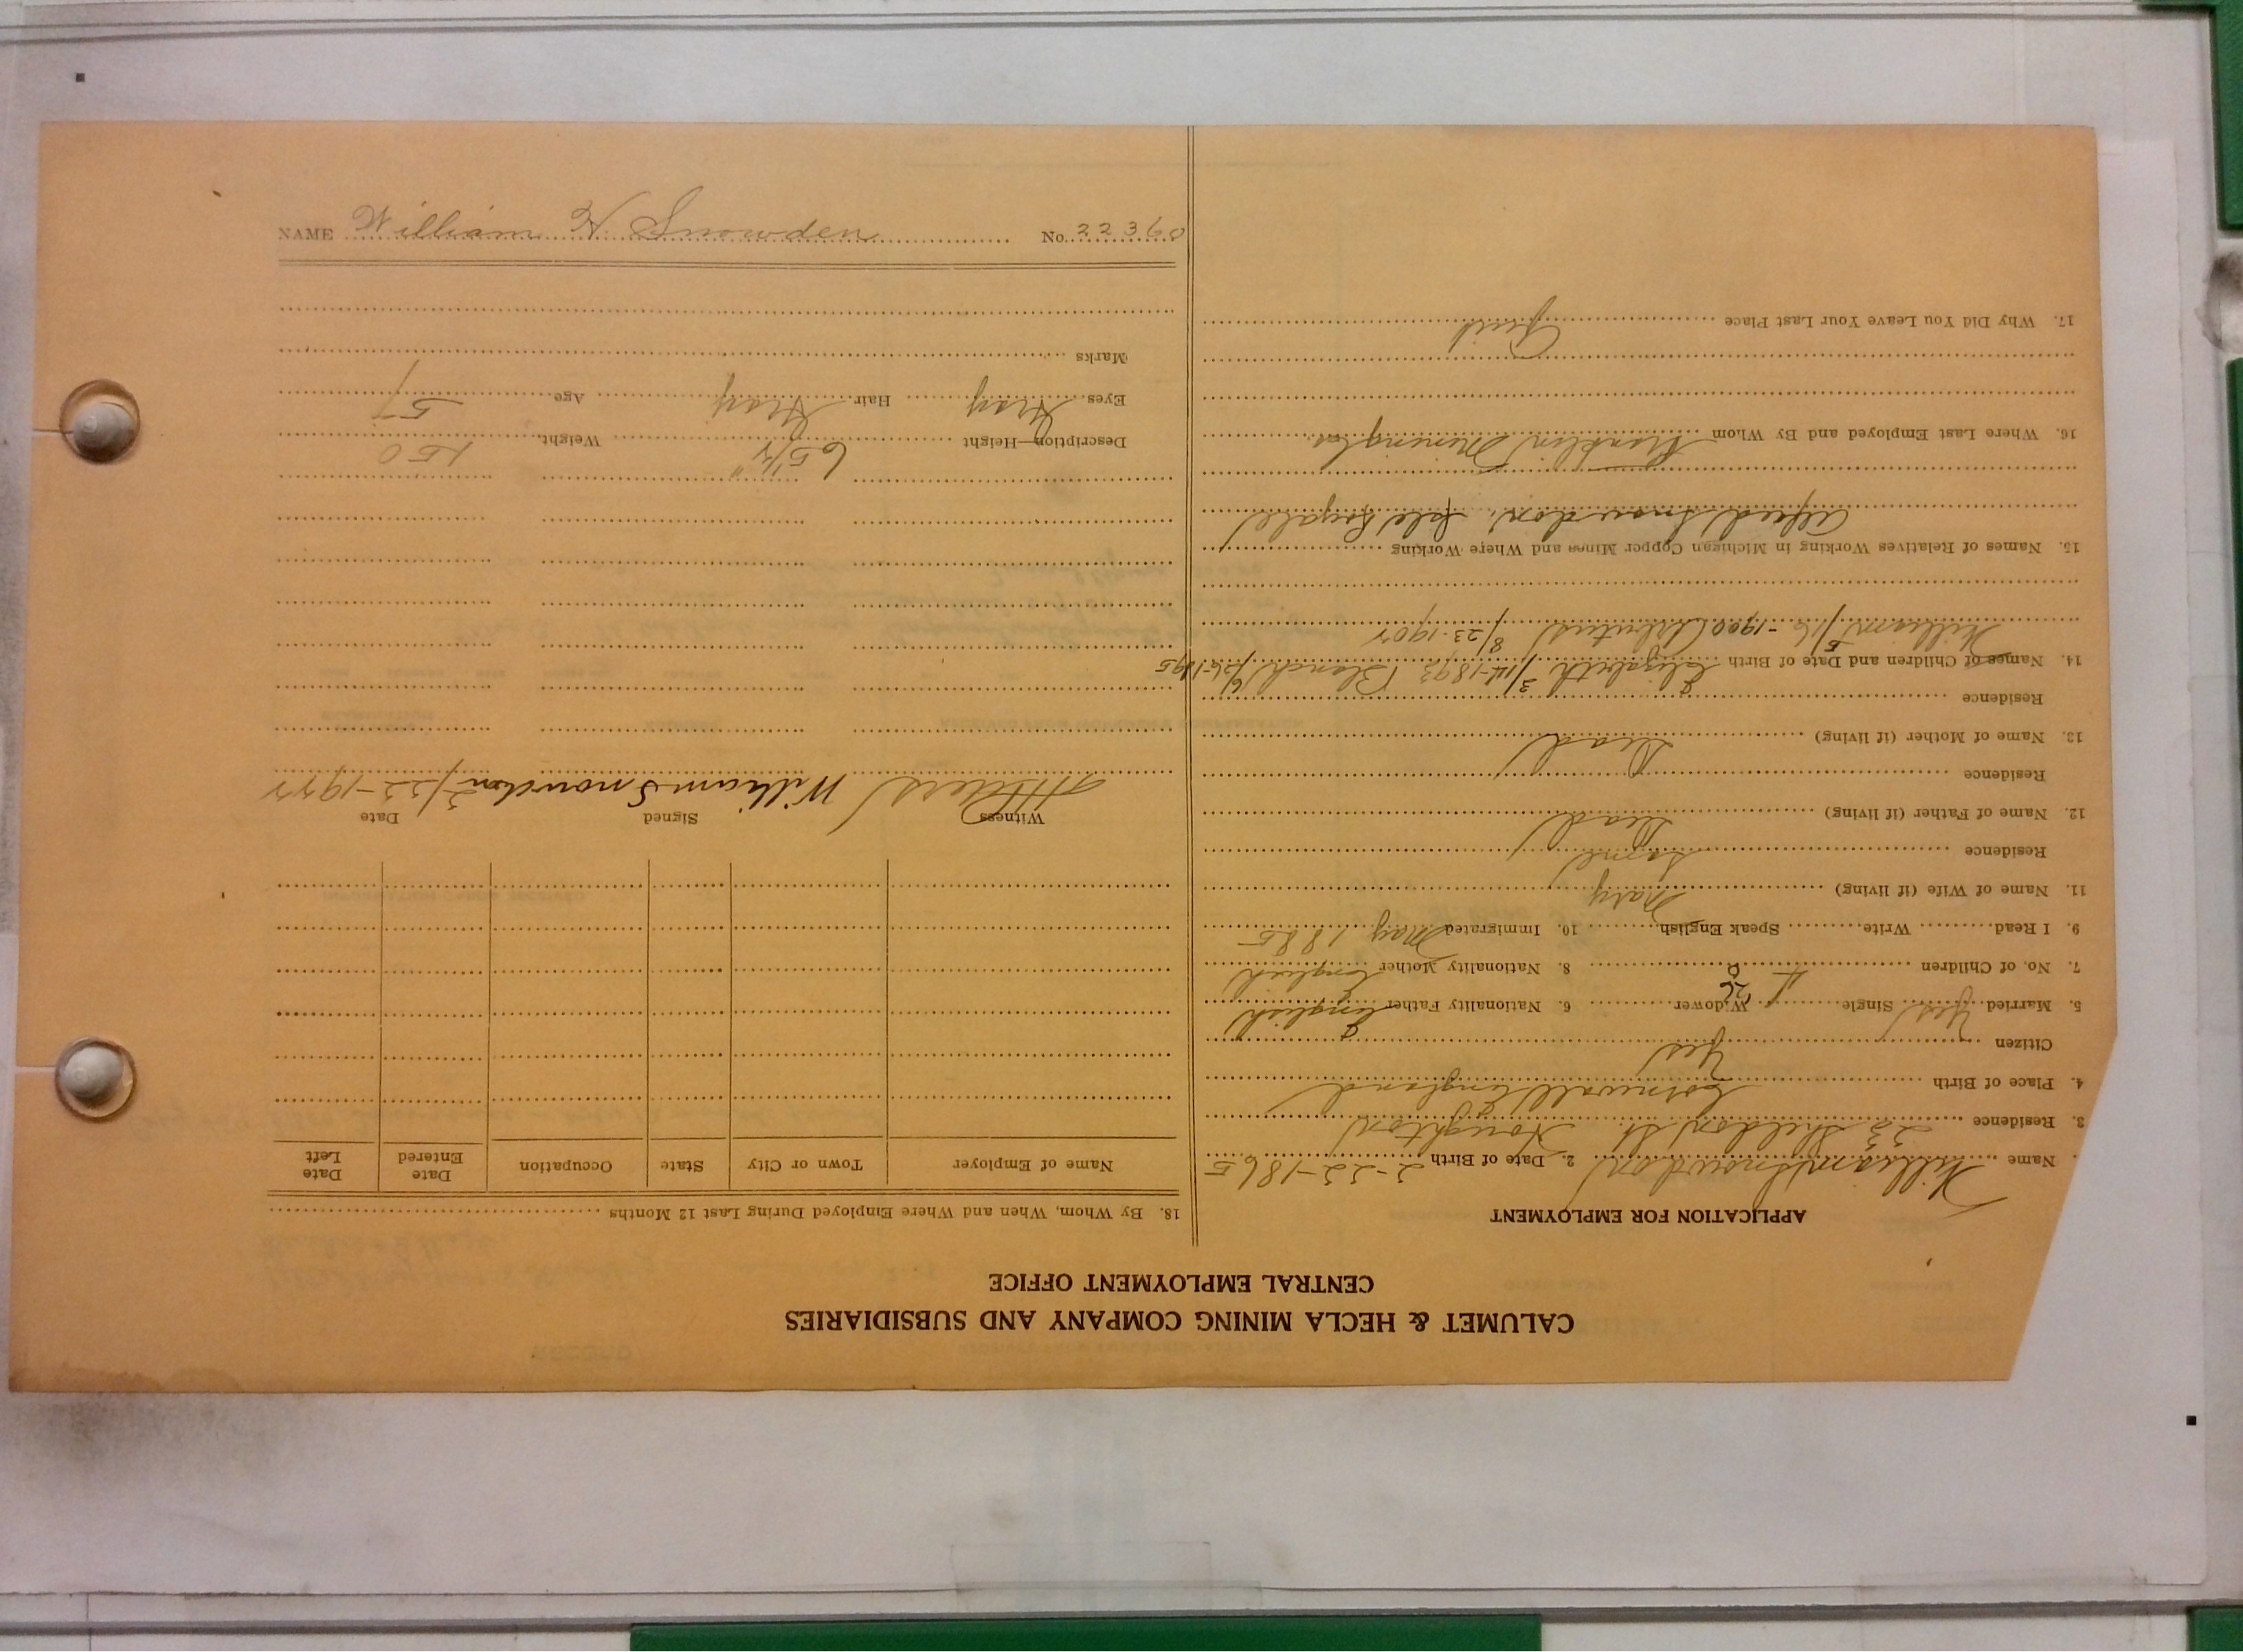 CALUMET & HECLA MINING COMPANY AND SUBSIDIARIES
CENTRAL EMPLOYMENT OFFICE
APPLICATION FOR EMPLOYMENT
Name William Snowdon 2. Date of Birth 2-22-1865
3. Residence 23 Sheldon St. Houghton
4. Place of Birth Cornwall England
Citizen Yes
5. Married Yes Single Widower 6. Nationality Father English
7. No. of Children 4 8. Nationality Mother English
9. I Read Write Speak English 10. Immigrated May 1885
11. Name of Wife (if living) Mary
Residence Same
12. Name of Father (if living) Dead
Residence
13. Name of Mother (if living) Dead
Residence
14. Names of Children and Date of Birth Elizabeth 3/14-1893 Blanch 6/26-1895
William 5/16-1900 8/23-1907
15. Names of Relatives Working in Michigan Copper Mines and Where Working
Alfred Snowdon, Isle Royale
16. Where Last Employed and By Whom Franklin Mining Co.
17. Why Did You Leave Your Last Place Quit
18. By Whom, When and Where Employed During Last 12 Months
Name of Employer Town or City State Occupation Date Entered Date Left
Witness Signed Date
William Snowdon 2/22-1922
Description—Height 65 1/2" Weight 150
Eyes Gray Hair Gray Age 57
Marks
NAME William H. Snowden No. 22360